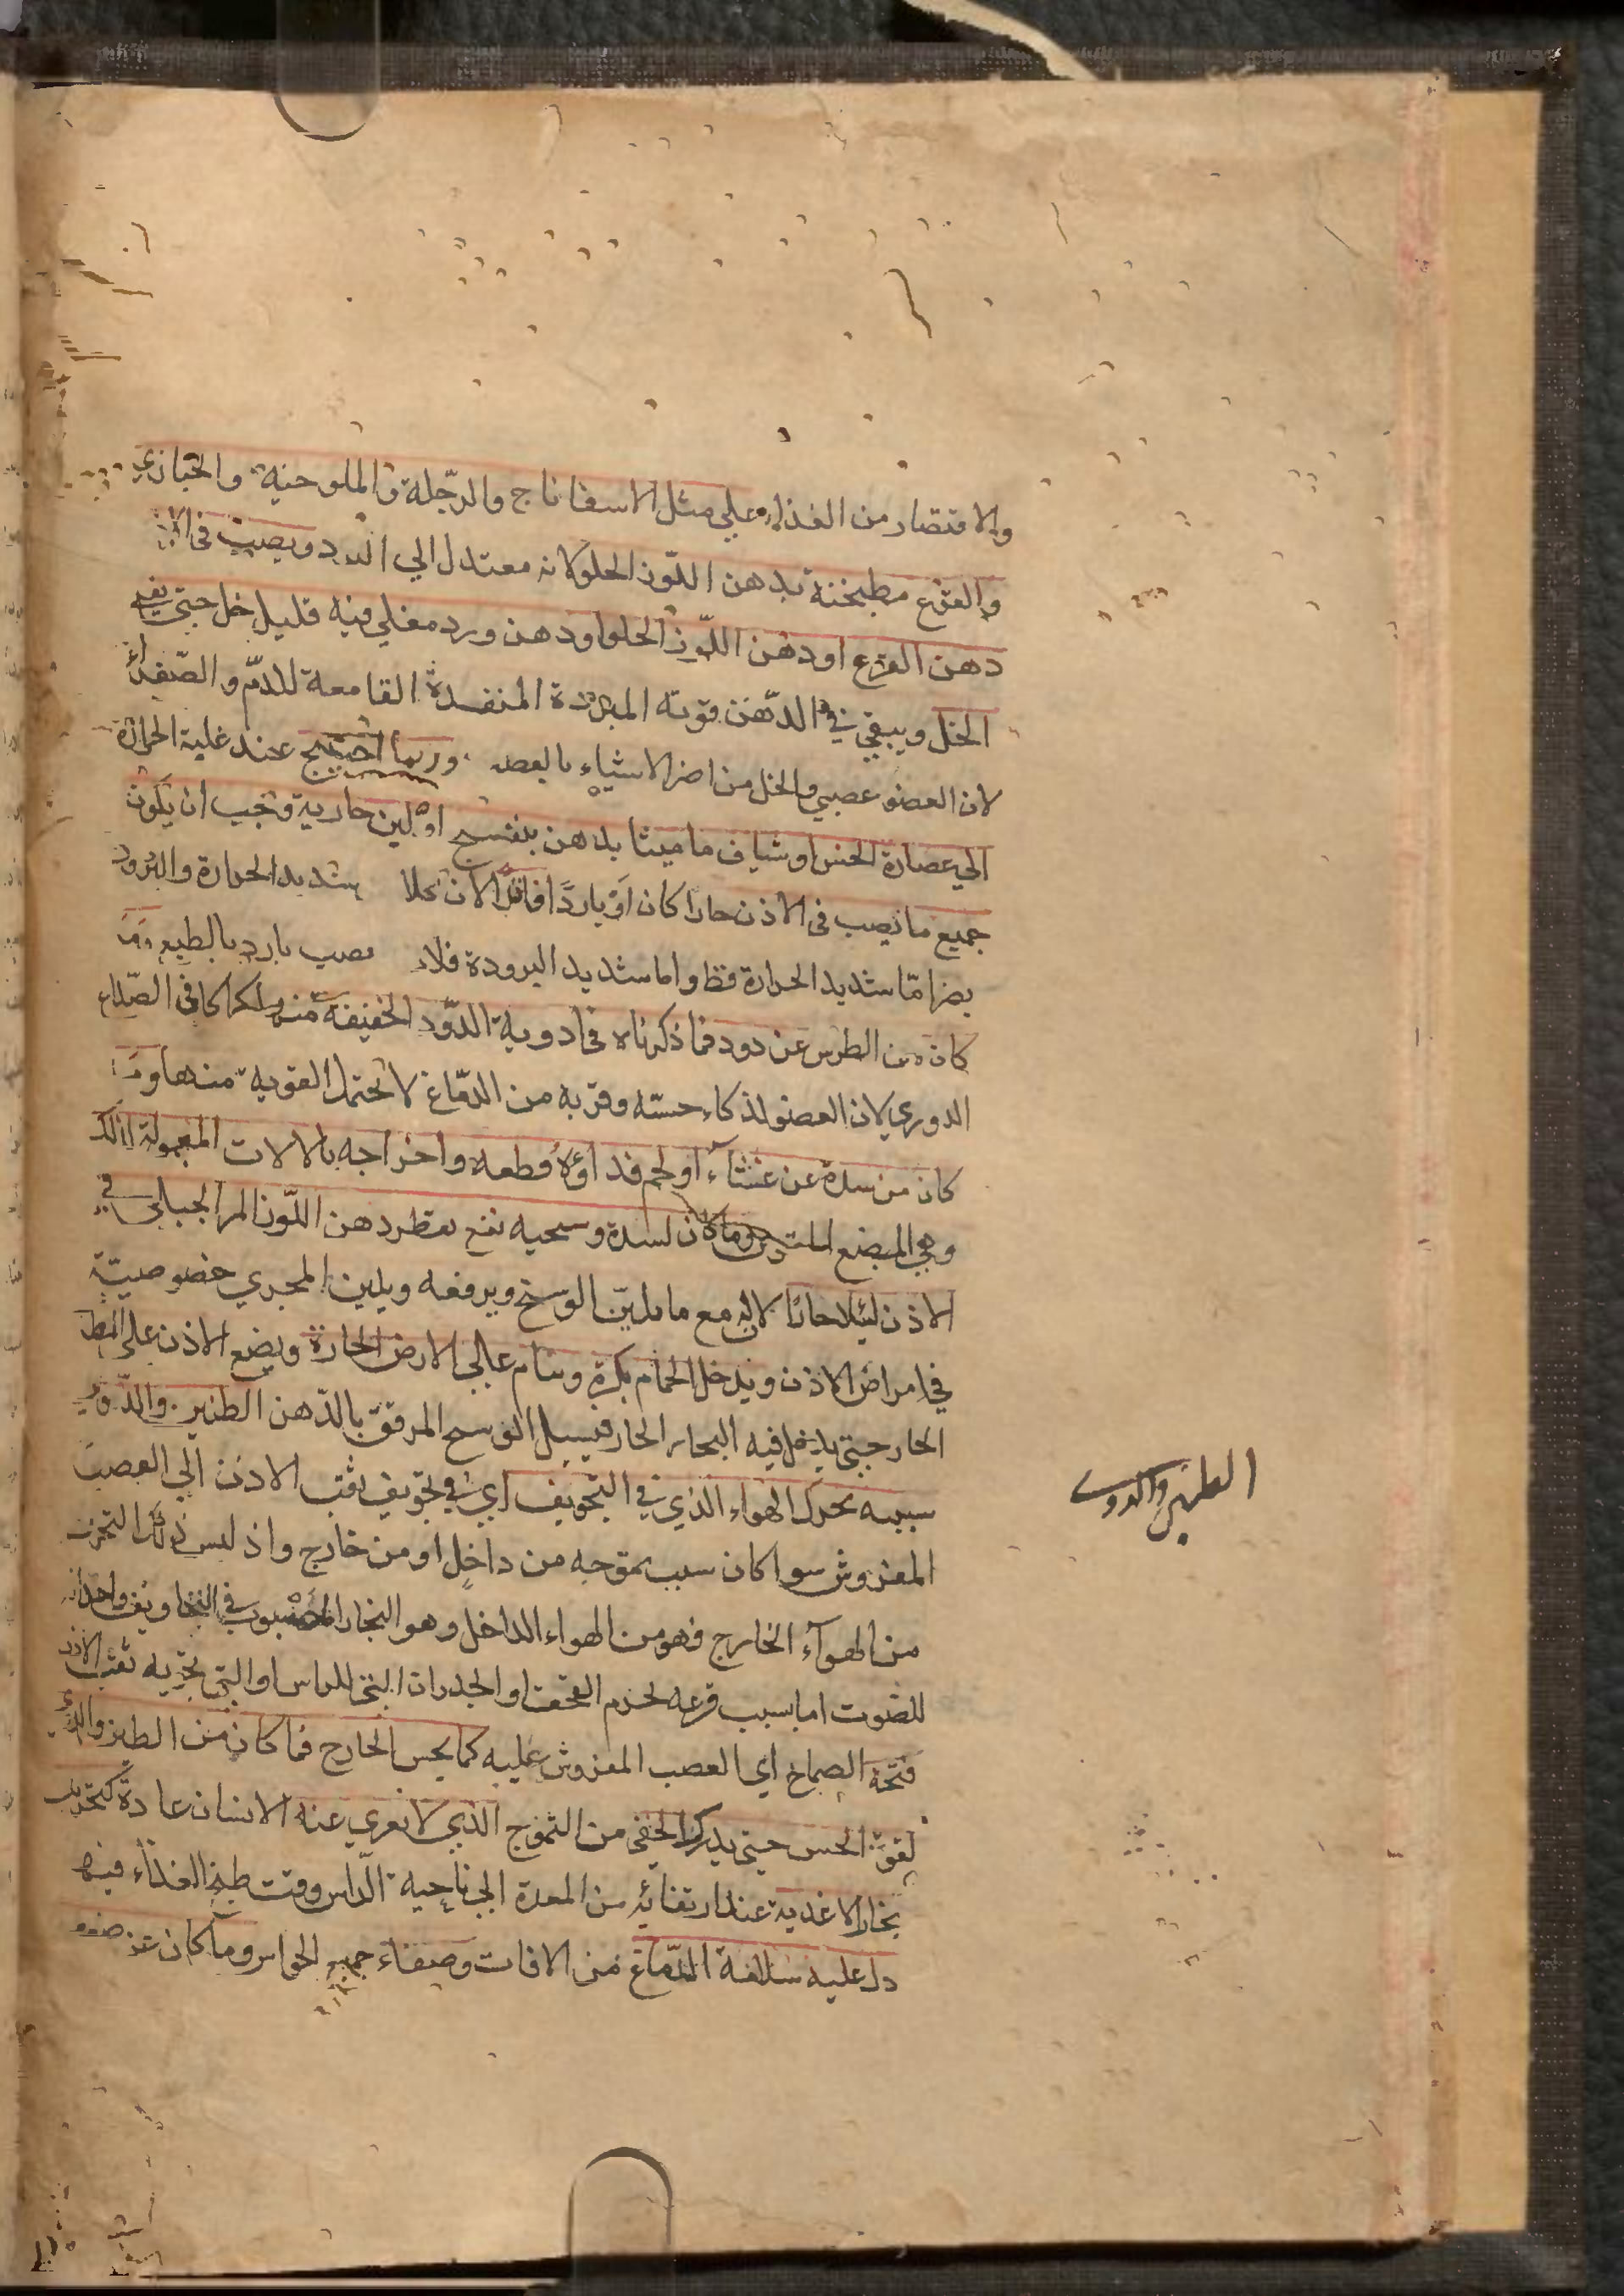 والاقتصار من الغذاء على مثل الاسفاناج والرجلة والملوخية والخبازي
والقرع مطبخنة بدهن اللوز الحلو لانه معتدل الي البرد ويصب في الاذن
دهن القرع او دهن اللوز الحلو او دهن ورد مغلي فيه قليل خل حتي يفني
الخل ويبقي في الدهن قوته المبردة المنفذة القامعة للدم والصفراء
لان العضو عصبي والخل من اضر الاشياء بالعصب وربما احتيج عند غلبة الحرارة
الي عصارة الخس او شياف ماميثا بدهن بنفسج او لبن جارية ويجب ان يكون
جميع ما يصب في الاذن حارا كان او باردا فاترا لان كلا شديد الحرارة والبرود
يضر اما شديد الحرارة فظ واما شديد البرودة فلا يصب بارد بالطبع وما
كان من الطرش عن دود فما ذكرناه في ادوية الدود الخفيفة منه لا كما في الصداع
الدوري لان العضو لذكاء حسه وقربه من الدماغ لا يحتمل القوية منها وما
كان من سدة عن غشاء او لحم فدواؤه قطعه واخراجه بالالات المعمولة لذلك
وهي المبضع وما كان لسدة وسخية نفع تقطر دهن اللوز المر الجبلي في
الاذن ليلا حارا لانه مع ما يلين الوسخ ويرققه ويلين المجري خصوصية
في امراض الاذن ويدخل الحمام بكرة وينام عالي الارض الحارة ويضع الاذن علي
الحار حتي يدخل فيه البخار الحار فيسيل الوسخ المرقق بالدهن الطنين والدوي
سببه تحرك الهواء الذي في التجويف اي في تجويف ثقب الاذن الي العصب
المفروش سوا كان سبب تموجه من داخل او من خارج واذ ليس ذلك التحرك
من الهواء الخارج فهو من الهواء الداخل وهو البخار المصبوب في التجاويف واحداثه
للصوت اما بسبب قرعه لجرم القحف او الجدران التي للراس او التي تحويه ثقب الاذن
فتحة الصماخ اي العصب المفروش عليه كما يحس الخارج فما كان من الطنين والدوي
لقوة الحس حتي يدرك الخفي من التموج الذي لا يعري عنه الانسان عادة كتحريك
بخار الاغذية عند ارتقائه من المعدة الي ناحية الراس وقت طبخ الغذاء فيها
دل عليه سلامة الدماغ من الافات وصفاء جميع الحواس وما كان عن ضعف
الطنين والدوي